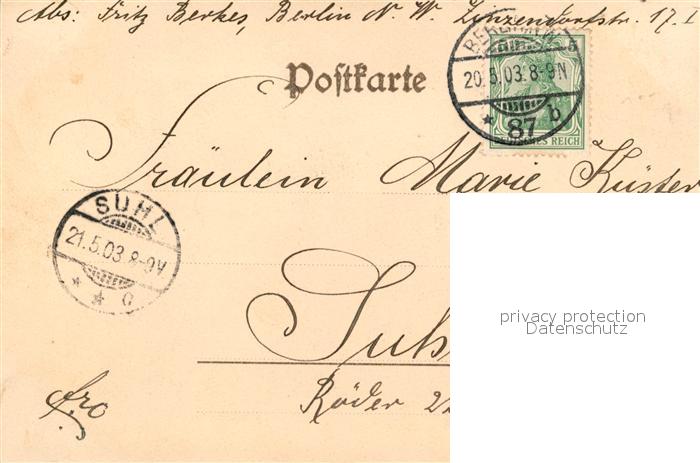 Abs: Fritz Berkes, Berlin N. W. Zinzendorfstr. 17. I
BERLIN N.W.
20.5.03.8-9N
* 87 b
DEUTSCHES REICH
Postkarte
Fräulein Marie Küster
SUHL
21.5.03.8-9V
* * a
Suh
Röder
fro
privacy protection
Datenschutz